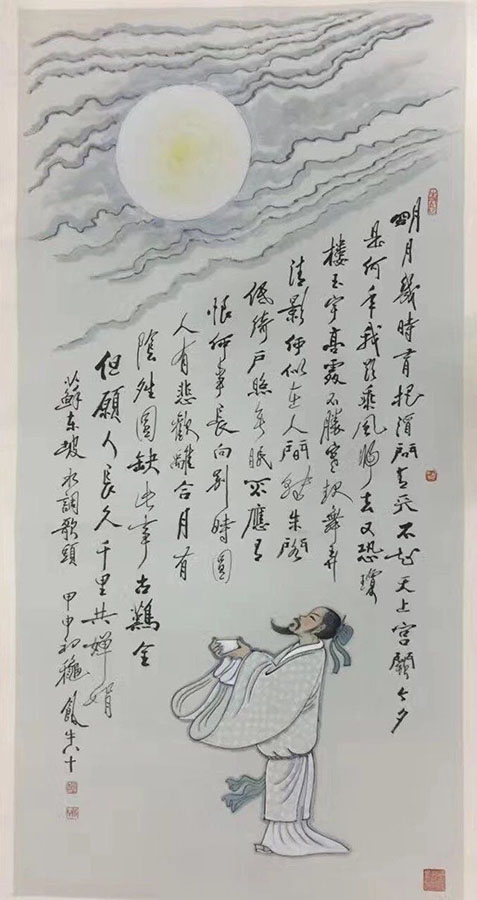 明月幾時有把酒問青天不知天上宮闕今夕
是何年我欲乘風歸去又恐瓊
樓玉宇高處不勝寒起舞弄
清影何似在人間轉朱閣
低綺戶照無眠不應有
恨何事長向別時圓
人有悲歡離合月有
陰晴圓缺此事古難全
但願人長久千里共嬋娟
蘇東坡水調歌頭 甲申初穐